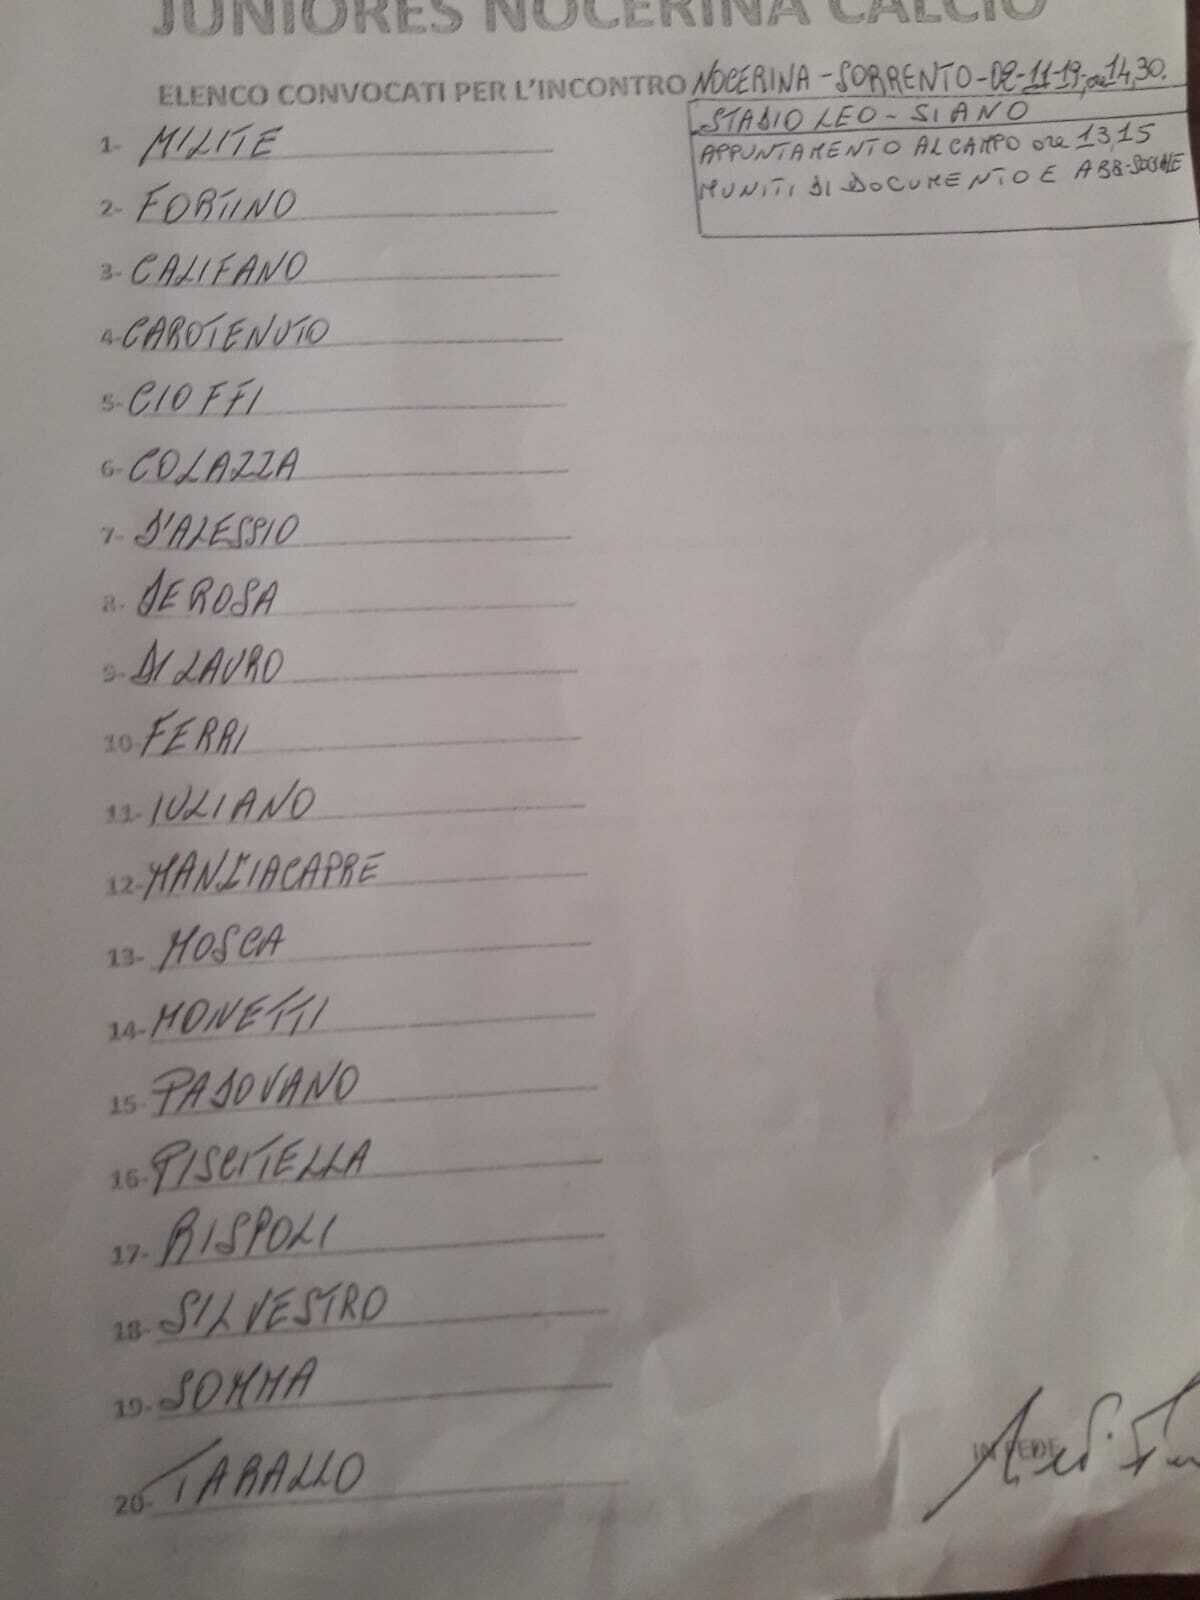 JUNIORES NOCERINA CALCIO
ELENCO CONVOCATI PER L'INCONTRO NOCERINA - SORRENTO - 02-11-19, ore 14,30.
STADIO LEO - SIANO
APPUNTAMENTO AL CAMPO ore 13,15
MUNITI DI DOCUMENTO E ABB-SOCIALE
1- MILITE
2- FORTINO
3- CALIFANO
4- CAROTENUTO
5- CIOFFI
6- COLAZZA
7- D'ALESSIO
8- DE ROSA
9- DI LAURO
10- FERRI
11- IULIANO
12- MANZIACAPRE
13- MOSCA
14- MONETTI
15- PADOVANO
16- PISCITELLA
17- RISPOLI
18- SILVESTRO
19- SOMMA
20- TARALLO
IN FEDE